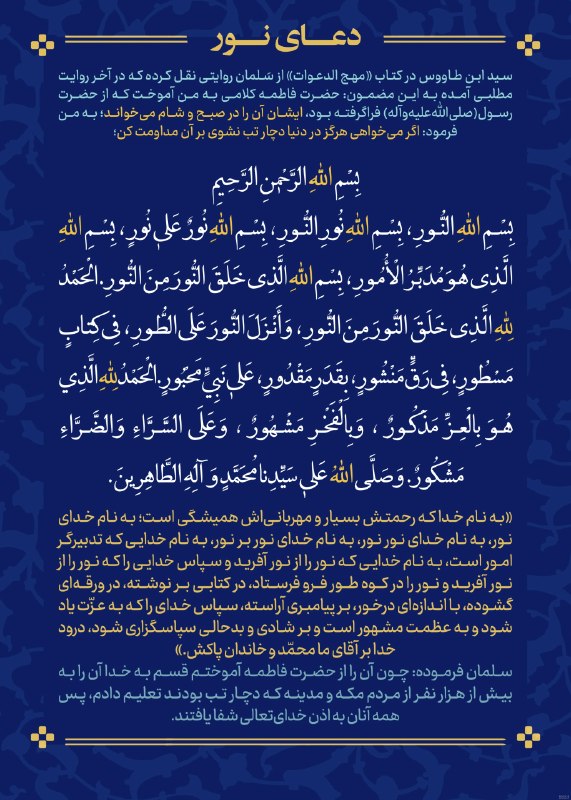 دعـــای نـــور
سید ابن طاووس در کتاب «مهج الدعوات» از سَلمان روایتی نقل کرده که در آخر روایت
مطلبی آمده به این مضمون: حضرت فاطمه کلامی به من آموخت که از حضرت
رسول(صلی‌الله‌علیه‌وآله) فراگرفته بود، ایشان آن را در صبح و شام می‌خواند؛ به من
فرمود: اگر می‌خواهی هرگز در دنیا دچار تب نشوی بر آن مداومت کن؛
بِسْمِ اللهِ الرَّحْمٰنِ الرَّحِيمِ
بِسْمِ اللهِ النُّورِ، بِسْمِ اللهِ نُورِ النُّورِ، بِسْمِ اللهِ نُورٌ عَلىٰ نُورٍ، بِسْمِ اللهِ
الَّذِى هُوَ مُدَبِّرُ الْأُمُورِ، بِسْمِ اللهِ الَّذِى خَلَقَ النُّورَ مِنَ النُّورِ. الْحَمْدُ
لِلّٰهِ الَّذِى خَلَقَ النُّورَ مِنَ النُّورِ، وَ أَنْزَلَ النُّورَ عَلَى الطُّورِ، فِى كِتابٍ
مَسْطُورٍ، فِى رَقٍّ مَنْشُورٍ، بِقَدَرٍ مَقْدُورٍ، عَلىٰ نَبِيٍّ مَحْبُورٍ. الْحَمْدُ لِلّٰهِ الَّذِي
هُوَ بِالْعِزِّ مَذْكُورٌ ، وَ بِالْفَخْرِ مَشْهُورٌ ، وَ عَلَى السَّرَّاءِ وَ الضَّرَّاءِ
مَشْكُورٌ. وَ صَلَّى اللهُ عَلىٰ سَيِّدِنا مُحَمَّدٍ وَ آلِهِ الطَّاهِرِينَ.
«به نام خدا که رحمتش بسیار و مهربانی‌اش همیشگی است؛ به نام خدای
نور، به نام خدای نورِ نور، به نام خدای نور بر نور، به نام خدایی که تدبیرگر
امور است، به نام خدایی که نور را از نور آفرید و سپاس خدایی را که نور را از
نور آفرید و نور را در کوه طور فرو فرستاد، در کتابی بر نوشته، در ورقه‌ای
گشوده، با اندازه‌ای درخور، بر پیامبری آراسته، سپاس خدای را که به عزّت یاد
شود و به عظمت مشهور است و بر شادی و بدحالی سپاسگزاری شود، درود
خدا بر آقای ما محمّد و خاندان پاکش.»
سلمان فرموده: چون آن را از حضرت فاطمه آموختم قسم به خدا آن را به
بیش از هزار نفر از مردم مکه و مدینه که دچار تب بودند تعلیم دادم، پس
همه آنان به اذن خدای‌تعالی شفا یافتند.